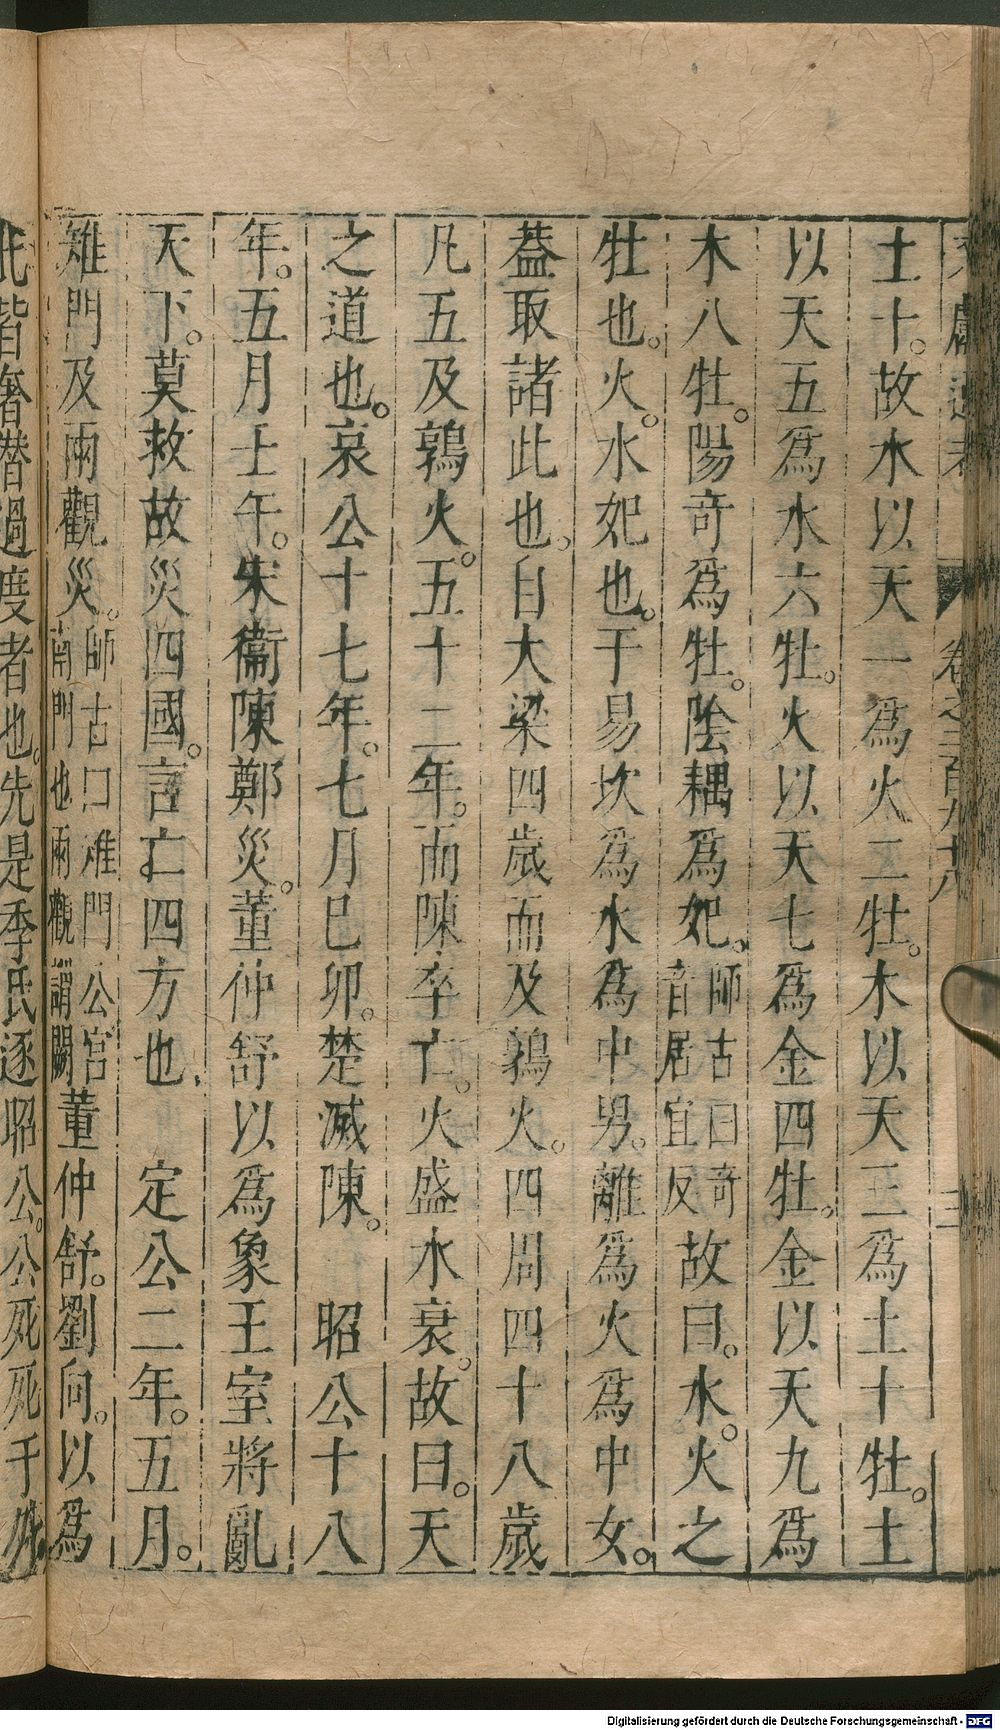 文獻通考 卷之二百九十八 三
土十。故水以天一為火二牡。木以天三為土十牡。土
以天五為水六牡。火以天七為金四牡。金以天九為
木八牡。陽奇為牡。陰耦為妃。師古曰奇音居宜反故曰。水。火之
牡也。火。水妃也。于易坎為水為中男。離為火為中女。
葢取諸此也。自大梁四歲而及鶉火。四周四十八歲
凡五及鶉火。五十二年。而陳卒亡。火盛水衰。故曰。天
之道也。哀公十七年。七月巳卯。楚滅陳。 昭公十八
年。五月士午。宋衞陳鄭災。董仲舒以為象王室將亂
天下。莫救故災四國。言亡四方也、 定公二年。五月。
雉門及兩觀災。師古口雉門公宮南門也兩觀謂闕董仲舒。劉向。以為
氏皆奢僣過度者也。先是季氏逐昭公。公死死于
Digitalisierung gefördert durch die Deutsche Forschungsgemeinschaft - DFG